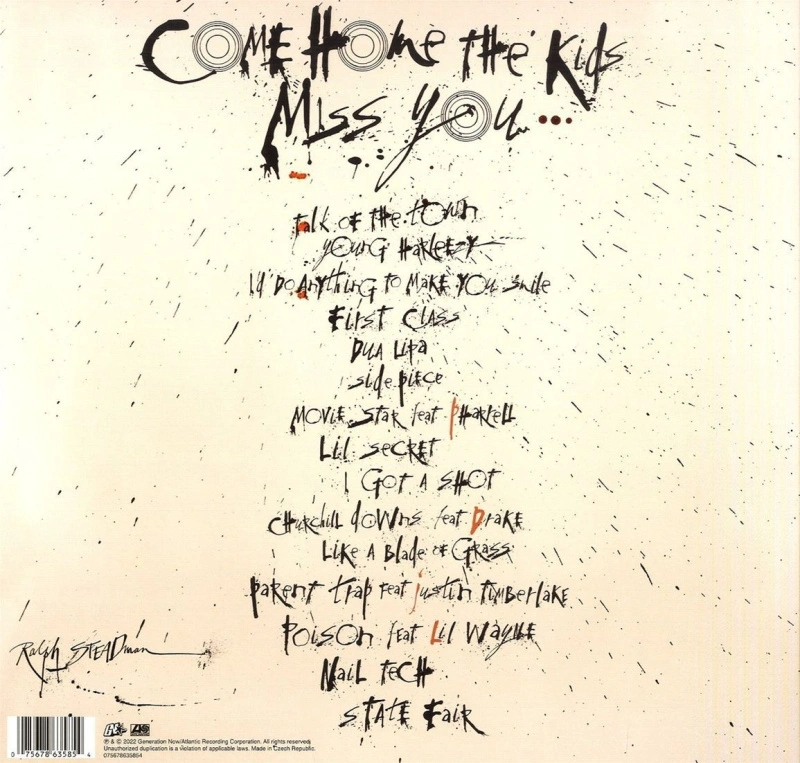 Come Home the Kids
Miss You...
Talk of the Town
Young Harleezy
I'd Do Anything to Make You Smile
First Class
Dua Lipa
Side Piece
Movie Star feat Pharrell
Lil Secret
I Got A Shot
Churchill Downs feat Drake
Like A Blade of Grass
Parent Trap feat Justin Timberlake
Poison feat Lil Wayne
Nail Tech
State Fair
Ralph STEADman
℗ & © 2022 Generation Now/Atlantic Recording Corporation. All rights reserved.
Unauthorized duplication is a violation of applicable laws. Made in Czech Republic.
075678635854
0 75678 63585 4